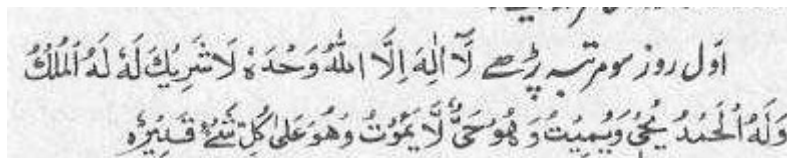 اوّل روز سو مرتبہ پڑھے لَآ اِلٰهَ اِلَّا اللّٰهُ وَحْدَهٗ لَا شَرِيْكَ لَهٗ لَهُ الْمُلْكُ
وَلَهُ الْحَمْدُ يُحْيٖ وَيُمِيْتُ وَهُوَ حَيٌّ لَّا يَمُوْتُ وَهُوَ عَلٰى كُلِّ شَيْءٍ قَدِيْرٌه